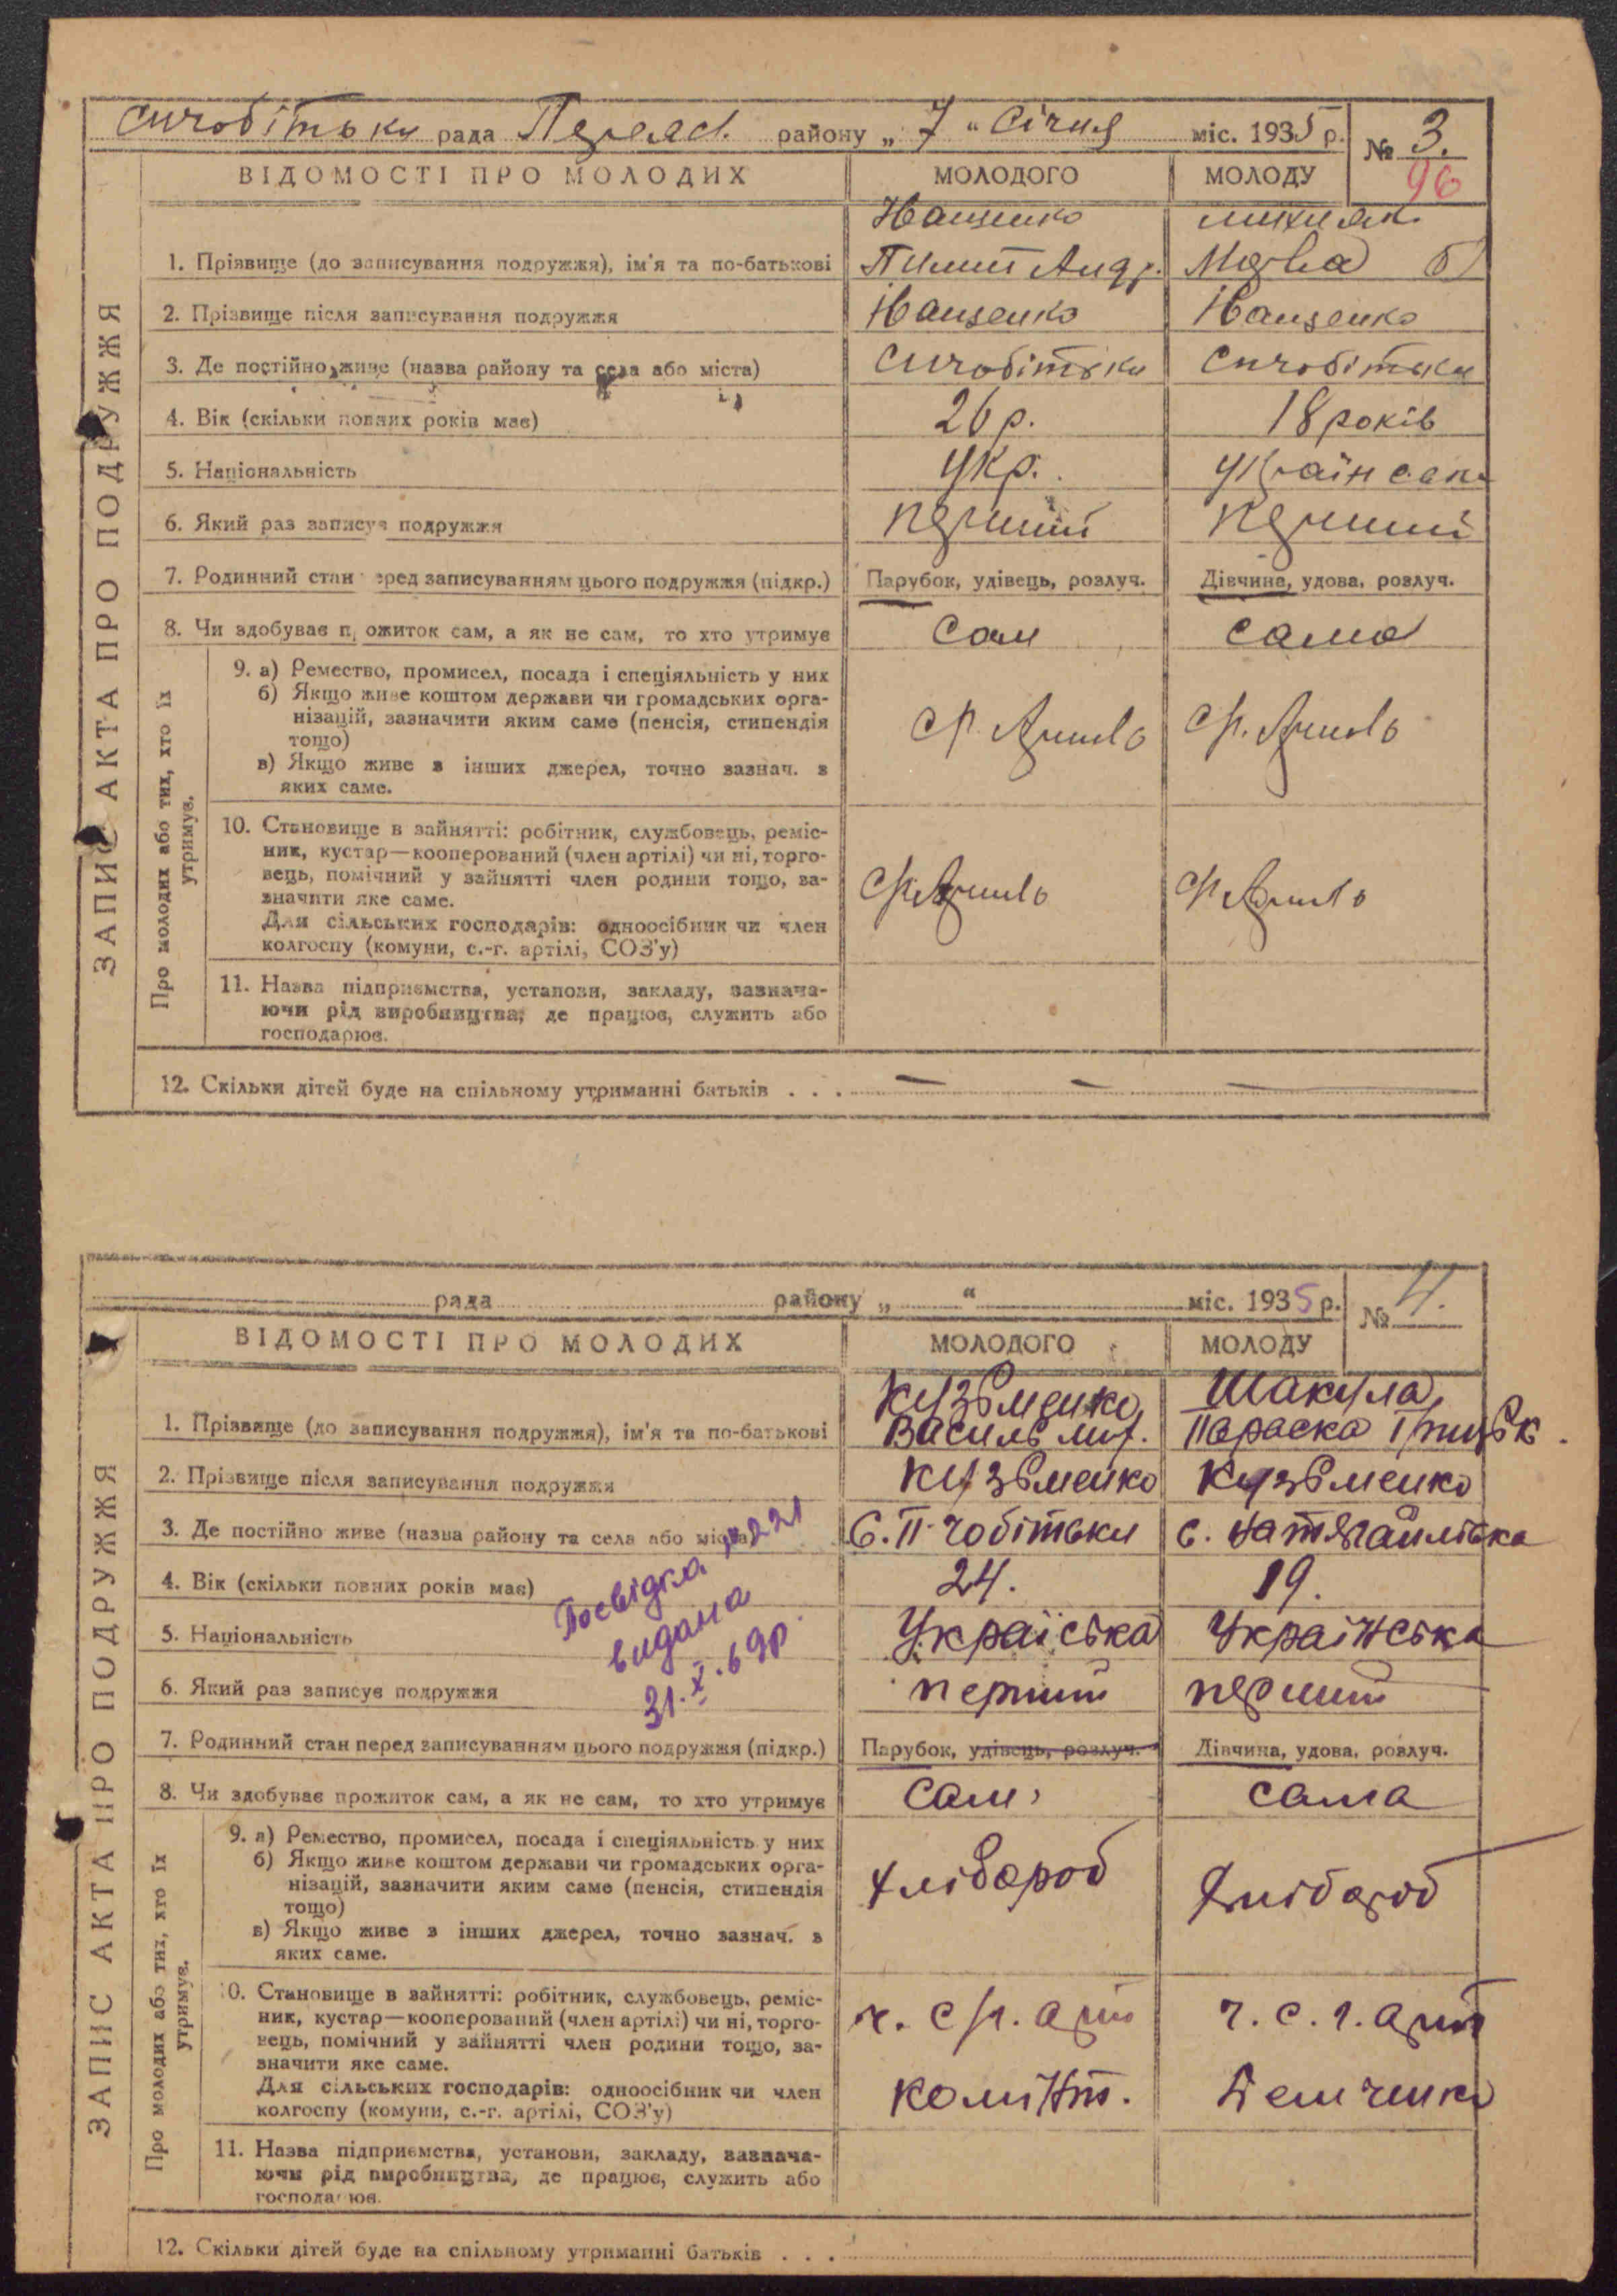 рада Переяс. району „ 7 “ Січня міс. 1935 р.
№ 3.
96
ВІДОМОСТІ ПРО МОЛОДИХ МОЛОДОГО МОЛОДУ
ЗАПИС АКТА ПРО ПОДРУЖЖЯ
Іващенко
1. Прізвище (до записування подружжя), ім'я та по-батькові Пилип Андр.
2. Прізвище після записування подружжя Іващенко Іващенко
3. Де постійно живе (назва району та села або міста)
4. Вік (скільки повних років має) 26 р. 18 років
5. Національність укр.
6. Який раз записує подружжя перший перший
7. Родинний стан перед записуванням цього подружжя (підкр.) Парубок, удівець, розлуч. Дівчина, удова, розлуч.
8. Чи здобуває прожиток сам, а як не сам, то хто утримує сам сама
Про молодих або тих, хто їх утримує.
9. а) Ремество, промисел, посада і спеціяльність у них
б) Якщо живе коштом держави чи громадських орга-
нізацій, зазначити яким саме (пенсія, стипендія
тощо)
в) Якщо живе з інших джерел, точно зазнач. з
яких саме.
10. Становище в зайнятті: робітник, службовець, реміс-
ник, кустар—кооперований (член артілі) чи ні, торго-
вець, помічний у зайнятті член родини тощо, за-
значити яке саме.
Для сільських господарів: одноосібник чи член
колгоспу (комуни, с.-г. артілі, СОЗ'у)
11. Назва підприємства, установи, закладу, зазнача-
ючи рід виробництва, де працює, служить або
господарює.
12. Скільки дітей буде на спільному утриманні батьків . . .
рада району „ “ міс. 1935 р.
№ 4.
ВІДОМОСТІ ПРО МОЛОДИХ МОЛОДОГО МОЛОДУ
ЗАПИС АКТА ПРО ПОДРУЖЖЯ
Кузьменко Шакула
1. Прізвище (до записування подружжя), ім'я та по-батькові Василь Параска
2. Прізвище після записування подружжя Кузьменко Кузьменко
3. Де постійно живе (назва району та села або міста)
4. Вік (скільки повних років має) 24. 19.
Посвідка №221
видана
31.X.69р.
5. Національність Украіська Украінська
6. Який раз записує подружжя перший перший
7. Родинний стан перед записуванням цього подружжя (підкр.) Парубок, удівець, розлуч. Дівчина, удова, розлуч.
8. Чи здобуває прожиток сам, а як не сам, то хто утримує сам сама
Про молодих або тих, хто їх утримує.
9. а) Ремество, промисел, посада і спеціяльність у них
б) Якщо живе коштом держави чи громадських орга-
нізацій, зазначити яким саме (пенсія, стипендія
тощо)
хлібороб хлібороб
в) Якщо живе з інших джерел, точно зазнач. з
яких саме.
10. Становище в зайнятті: робітник, службовець, реміс-
ник, кустар—кооперований (член артілі) чи ні, торго-
вець, помічний у зайнятті член родини тощо, за-
значити яке саме.
ч. с.г. арт
Для сільських господарів: одноосібник чи член
колгоспу (комуни, с.-г. артілі, СОЗ'у)
Комінт. Демченка
11. Назва підприємства, установи, закладу, зазнача-
ючи рід виробництва, де працює, служить або
господарює.
12. Скільки дітей буде на спільному утриманні батьків . . .